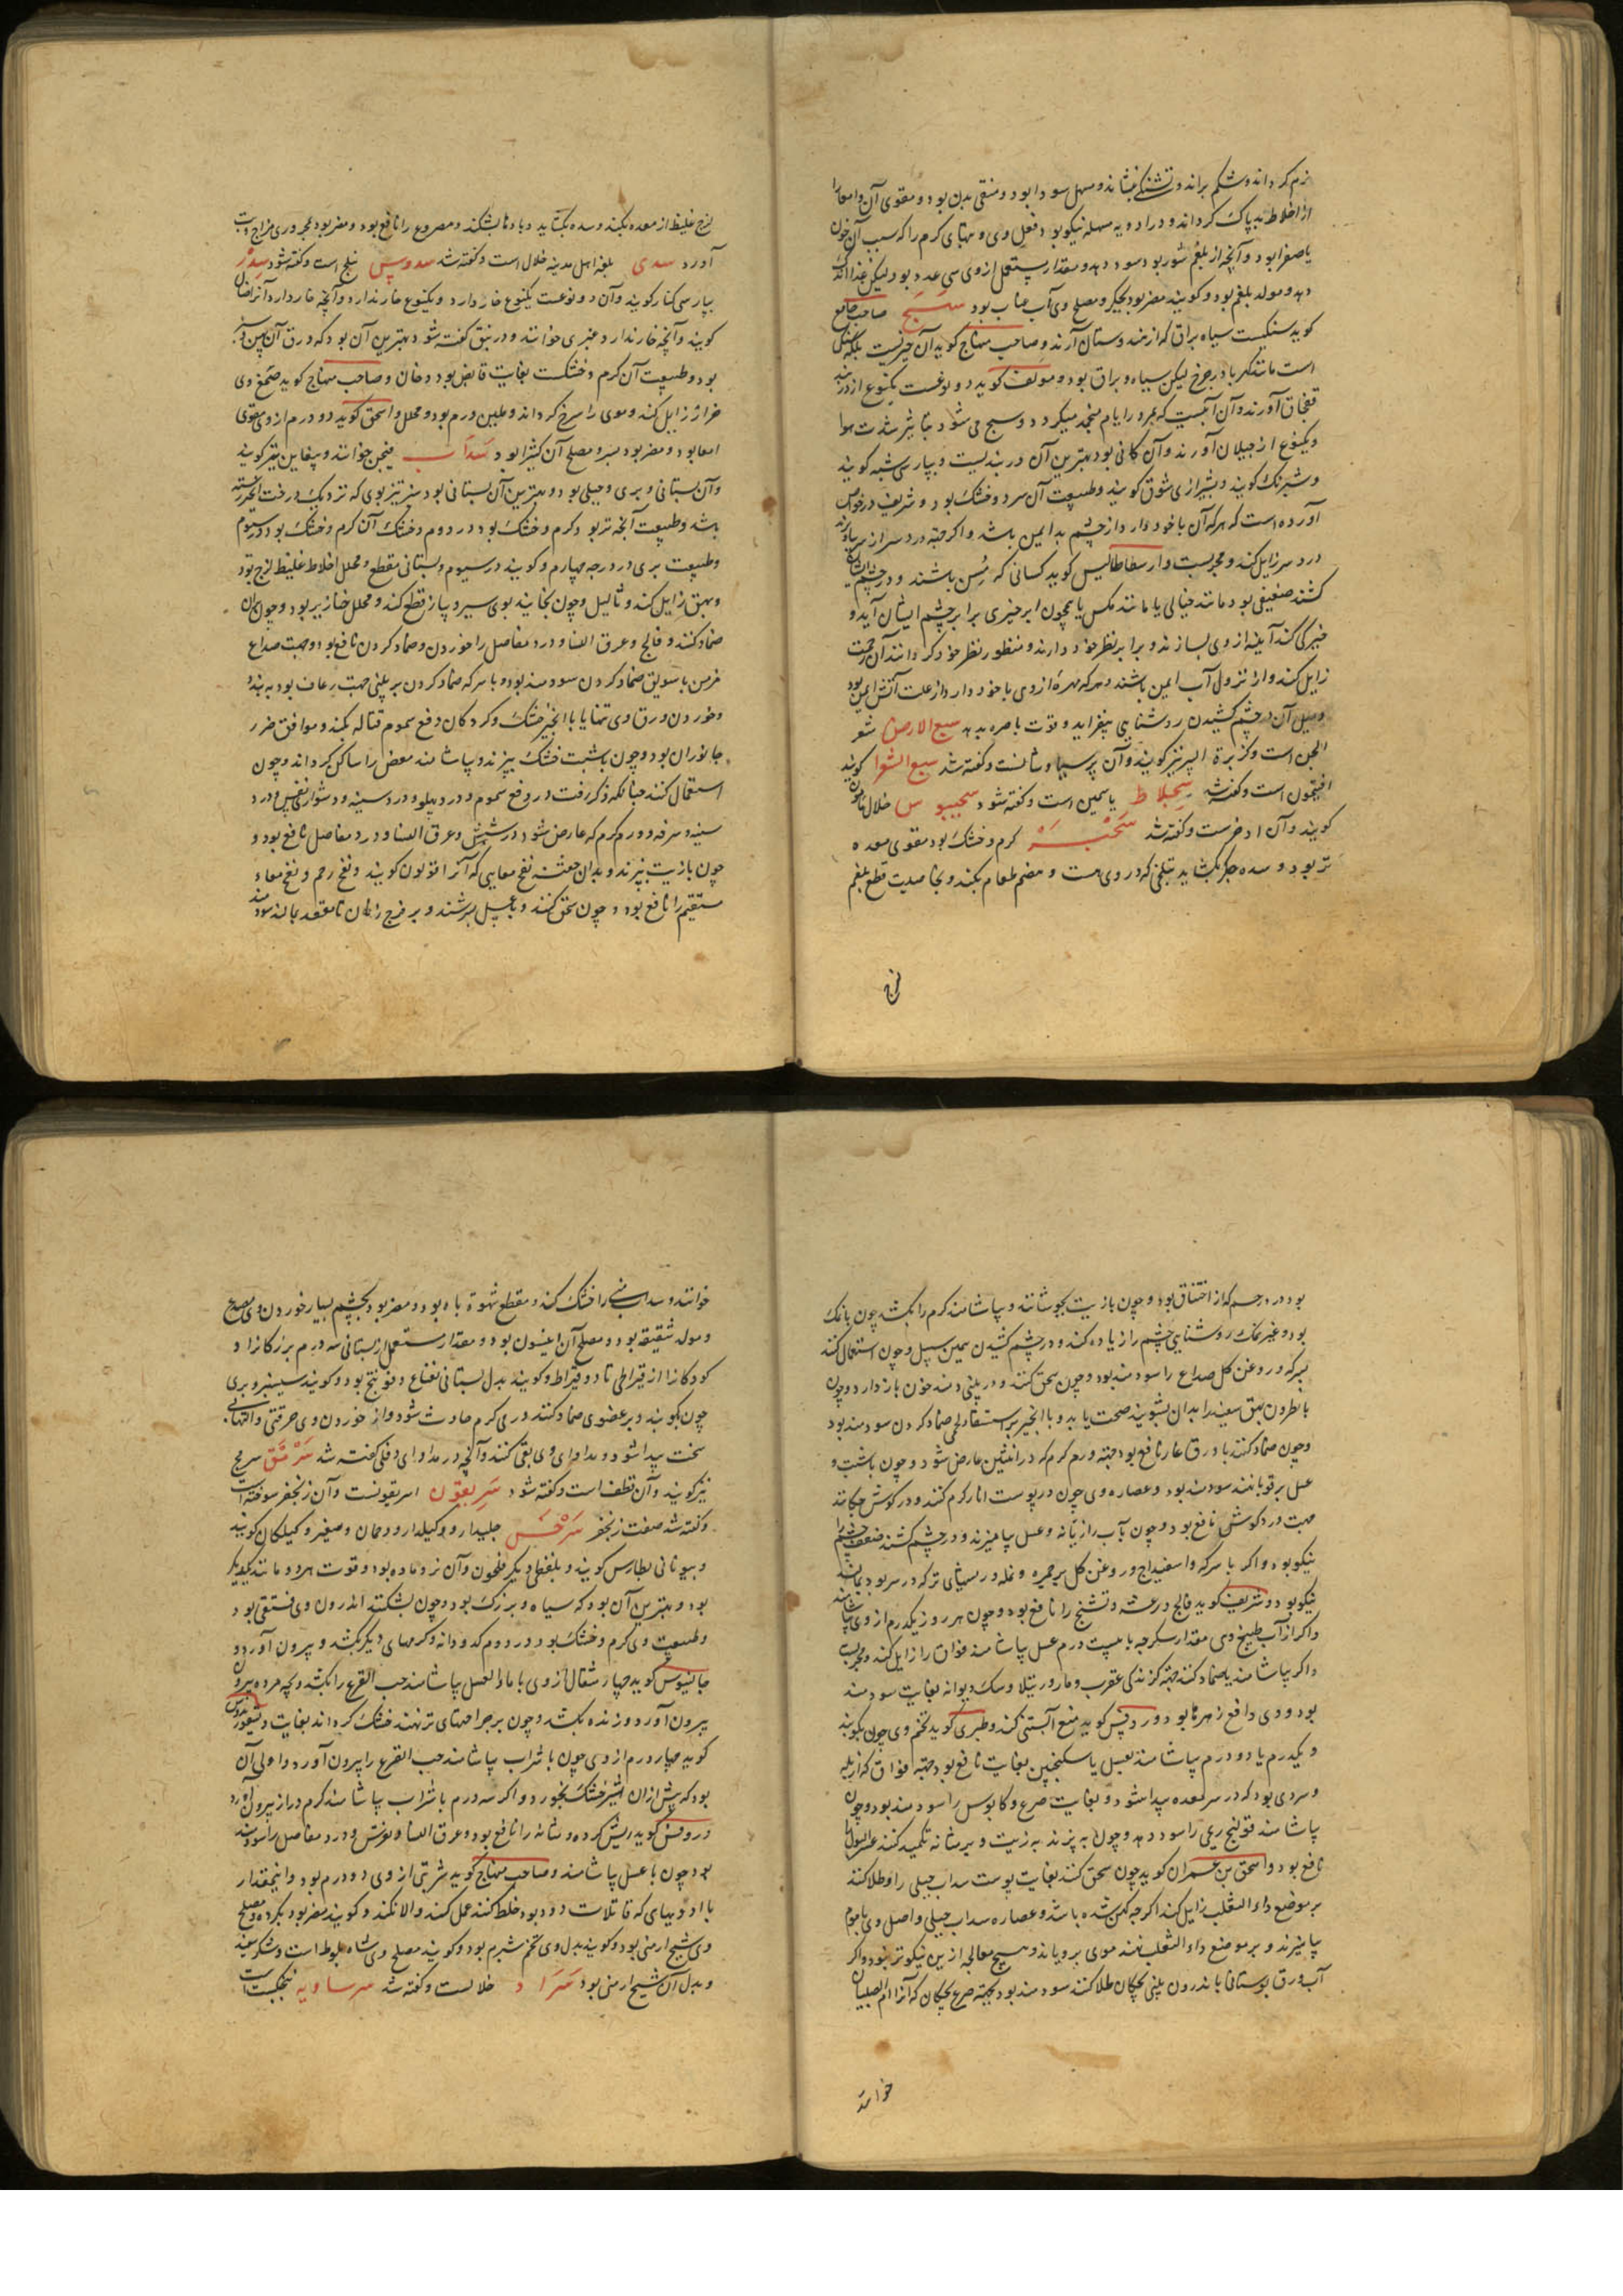 نرم کرداند و شکم براند و تشنگی بنشاند و مسهل سودا بود و منقی بدن بود و مقوی آن و امعا را
از اخلاط بد پاک کرداند و در ادویه مسهله نیکو بود و فعل وی و مهیای کرم را که سبب آن خون
یا صفرا بود و آنچه از بلغم شور بود سود دهد و مقدار مستعمل از وی سی عدد بود ولیکن غذا اندک
دهد و مولد بلغم بود و کویند مضر بود بجگر و مصلح وی آب عناب بود سبج صاحب جامع
کوید سنکیست سیاه براق که از هندوستان آرند و صاحب منهاج کوید آن حجر نیست بلکه سنکی
است مانند کهربا در جرخ لیکن سیاه و براق بود و مولف کوید دو نوعست یکنوع از دربند
قفجاق آورند و آن آبیست که بمرور ایام منجمد میکردد و سبج می شود بتاثیر شدت هوا
و یکنوع از جیلان آورند و آن کانی بود بهترین آن دربندیست و بپارسی شبه کویند
و شبرنک کویند و بشیرازی شوق کویند و طبیعت آن سرد و خشک بود و شریف در خواص
آورده است که هرکه آن با خود دارد از چشم بد ایمن باشد و اکر جهت درد سر از سر بیاویزند
درد سر زایل کند و مجربست و ارسطاطالیس کوید کسانی که مسن باشند و در چشم ایشان
کشند ضعیفی بود مانند خیالی یا مانند مکس یا همچون ابر چیزی برابر چشم ایشان آید و
خیرکی کند آینه از وی بسازند و برابر نظر خود دارند و منظور نظر خود کردانند آن زحمت
زایل کند و از نزول آب ایمن باشند و هرکه مهره از وی با خود دارد از علت آتش ایمن بود
و میل آن در چشم کشیدن روشنایی بیفزاید و قوت باصره بدهد سبع الارض شعر
الجن است و کزبرة البیر نیز کویند و آن پرسیاوشانست و کفته شد سبع الشعرا کویند
افتیمون است و کفته شد سجلاط یاسمین است و کفته شود سجیبوس خلال مامون
کویند و آن اذخرست و کفته شد سخبره کرم و خشک بود مقوی معده
تر بود و سده جکر بکشاید بتلخی که در وی هست و هضم طعام بکند و بخاصیت قطع بلغم
لزج
لزج غلیظ از معده بکند و سده بکشاید و بادها بشکند و مصروع را نافع بود و مضر بود بمحروری مزاج و تب
آورد سدی بلغة اهل مدینه خلال است و کفته شد سدوس نیلج است و کفته شود سدر
بپارسی کنار کویند و آن دو نوعست یکنوع خار دارد و یکنوع خار ندارد و آنچه خار دارد آنرا ضال
کویند و آنچه خار ندارد عبری خوانند و در نبق کفته شود بهترین آن بود که ورق آن پهن و سبز
بود و طبیعت آن کرم و خشکست بغایت قابض بود دخان و صاحب منهاج کوید صمغ وی
خراز زایل کند و موی را سرخ کرداند و ملین ورم بود و محلل و اسحق کوید دو درم از وی مقوی
امعا بود و مضر بود بسپرز و مصلح آن کتیرا بود سداب فیجن خوانند و پیغاین نیز کویند
و آن بستانی و بری و جبلی بود و بهترین آن بستانی بود سبز تیزبوی که نزدیک درخت انجیر رسته
باشد و طبیعت آنچه تر بود کرم و خشک بود در دوم و خشک آن کرم و خشک بود در سیوم
و طبیعت بری در درجه چهارم و کویند در سیوم و بستانی مقطع و محلل اخلاط غلیظ لزج بود
و بهق زایل کند و ثالیل و چون بخایند بوی سیر و پیاز قطع کند و محلل خنازیر بود و چون بدان
ضماد کنند و فالج و عرق النسا و درد مفاصل را خوردن و ضماد کردن نافع بود و جهت صداع
مزمن با سویق ضماد کردن سودمند بود و با سرکه ضماد کردن بر بینی جهت رعاف بود ببندد
و خوردن ورق وی تنها یا با انجیر خشک و کردکان دفع سموم قتاله بکند و موافق ضرر
جانوران بود و چون با شبت خشک بپزند و بیاشامند مغص را ساکن کرداند و چون
استعمال کنند چنانکه ذکر رفت در دفع سموم و درد پهلو و درد سینه و دشواری نفس و درد
سینه و سرفه و ورم کرم که عارض شود در شش و عرق النسا و درد مفاصل نافع بود و
چون با زیت بپزند و بدان حقنه نفخ معایی که آنرا قولون کویند و نفخ رحم و نفخ معاء
مستقیم را نافع بود و چون سحق کنند و با عسل بسرشند و بر فرج زنان تا مقعد بمالند سودمند
بود در رحم که از اختناق بود و چون با زیت بجوشانند و بیاشامند کرم را بکشد چون با نمک
بود و غیر نمک روشنایی چشم را زیاده کند و در چشم کشیدن همین سبیل و چون استعمال کنند
بسرکه و روغن کل صداع را سودمند بود و چون سحق کنند و در بینی دمند خون باز دارد و چون
با نطرون بهق سفید را بدان بشویند صحت یابد و با انجیر بر استسقاء لحمی ضماد کردن سودمند بود
و چون ضماد کنند با ورق غار نافع بود جهة ورم کرم که در انثیین عارض شود و چون با شب و
عسل بر قوبا نهند سودمند بود و عصاره وی چون در پوست انار کرم کنند و در کوش چکانند
جهت درد کوش نافع بود و چون با آب رازیانه و عسل بیامیزند و در چشم کشند ضعف چشم را
نیکو بود و اکر با سرکه و اسفیداج و روغن کل بر حمره و نمله و ریشهای تر که در سر بود بمالند
نیکو بود و شریف کوید فالج و رعشه و تشنج را نافع بود و چون هر روز یکدرم از وی بیاشامند
و اکر از آب طبیخ وی مقدار سکرجه با بیست درم عسل بیاشامند فواق را زایل کند و مجربست
و اکر بیاشامند یا ضماد کنند جهة کزندکی عقرب و مار و رتیلا و سک دیوانه بغایت سودمند
بود و وی دافع زهرها بود و روفس کوید منع آبستنی کند و طبری کوید تخم وی چون بکوبند
و یکدرم یا دو درم بیاشامند بعسل یا سکنجبین بغایت نافع بود جهة فواق که از بله
و سردی بود که در سر معده پیدا شود و بغایت صرع و کابوس را سودمند بود و چون
بیاشامند قولنج ریحی را سود دهد و چون به پزند به زیت و بر مثانه تکمید کنند عسر البول را
نافع بود و اسحق بن عمران کوید چون سحق کنند بغایت پوست سداب جبلی را و طلا کنند
بر موضع داء الثعلب زایل کند اکرچه کهن شده باشد و عصاره سداب جبلی و اصل وی با موم
بیامیزند و بر موضع داء الثعلب نهند موی برویاند و هیچ معالجه ازین نیکوتر نبود و اکر
آب ورق بوستانی با اندرون بینی بچکان طلا کنند سودمند بود بجهة صرع بچکان که آنرا ام الصبیان
خوانند
خوانند و سداب منی را خشک کند و مقطع شهوة باه بود و مضر بود بچشم بسیار خوردن وی مصدع
و مولد شقیقه بود و مصلح آن انیسون بود و مقدار مستعمل از بستانی سه درم بزرکانرا و
کودکانرا از قیراطی تا دو قیراط و کویند بدل بستانی نعناع و فوتنج بود و کویند سیسنبر و بری
چون بکوبند و بر عضوی ضماد کنند ورمی کرم حادث شود و از خوردن وی حرقتی و التهابی
سخت پیدا شود و مداوای وی بقی کنند و آنچه در مداوای دفلی کفته شد سرمق سرمج
نیز کویند و آن قطف است و کفته شود سریقون اسریقونست و آن زنجفر سوخته است
و کفته شد صفت زنجفر سرخس جلیدارو و کیلدارو و دحمان وصغیر و کیلکان کویند
و بیونانی بطارس کویند و بلفظی دیکر فلحون و آن نر و ماده بود و قوت هر دو مانند یکدیکر
بود و بهترین آن بود که سیاه و بزرک بود و چون بشکنند اندرون وی فستقی بود
و طبیعت وی کرم و خشک بود در دوم کدودانه و کرمهای دیکر بکشد و بیرون آورد و
جالینوس کوید چهار مثقال از وی با ماء العسل بیاشامند حب القرع را بکشد و بچه مرده بیرون
بیرون آورد و زنده بکشد و چون بر جراحتهای تر نهند خشک کرداند بغایت و دیسقوریدوس
کوید چهار درم از وی چون با شراب بیاشامند حب القرع را بیرون آورد و اولی آن
بود که پیش از آن انجیر خشک بخورد و اکر سه درم با شراب بیاشامند کرم دراز بیرون آورد
و روفس کوید ریش کرده و مثانه را نافع بود و عرق النسا و نقرس و درد مفاصل را سودمند
بود چون با عسل بیاشامند و صاحب منهاج کوید شربتی از وی دو درم بود و اینمقدار
با ادویهای که قاتلات دود بود خلط کنند عمل کند و الا نکند و کویند مضر بود بکرده و مصلح
وی شیح ارمنی بود و کویند بدل وی تخم شبرم بود و کویند مصلح وی شاه بلوط است و شکر سفید
و بدل آن شیح ارمنی بود سراد خلالست و کفته شد سرساویه نجکشت است